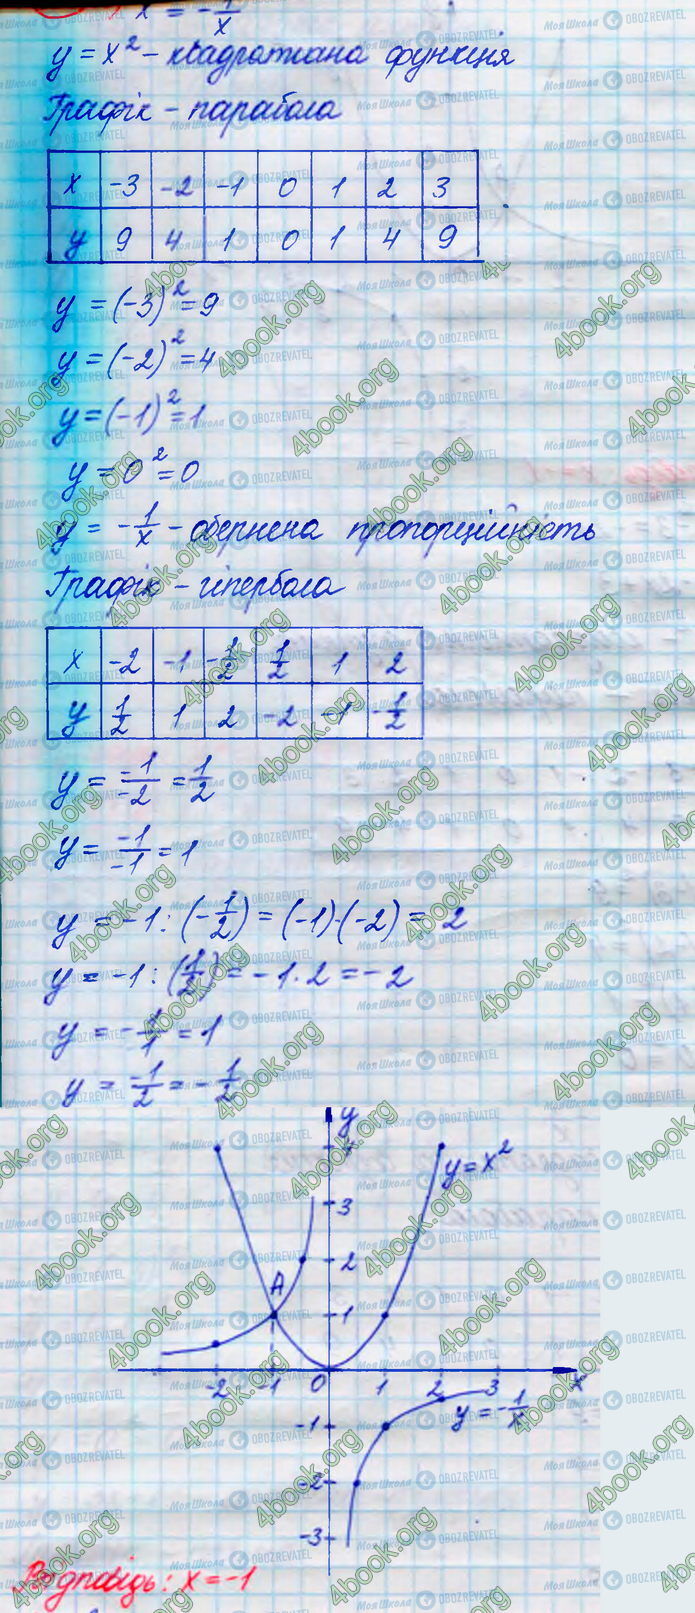 x² = -1/x
y = x² - квадратична функція
Графік - парабола
x -3 -2 -1 0 1 2 3
y 9 4 1 0 1 4 9
y = (-3)² = 9
y = (-2)² = 4
y = (-1)² = 1
y = 0² = 0
y = -1/x - обернена пропорційність
Графік - гіпербола
x -2 -1 -1/2 1/2 1 2
y 1/2 1 2 -2 -1 -1/2
y = -1/-2 = 1/2
y = -1/-1 = 1
y = -1 : (-1/2) = (-1)·(-2) = 2
y = -1 : (1/2) = -1·2 = -2
y = -1/1 = 1
y = -1/2 = -1/2
y
4
y = x²
3
2
A
1
-2 -1 0 1 2 3 x
y = -1/x
-1
-2
-3
Відповідь: x = -1
4book.org
МояШкола OBOZREVATEL